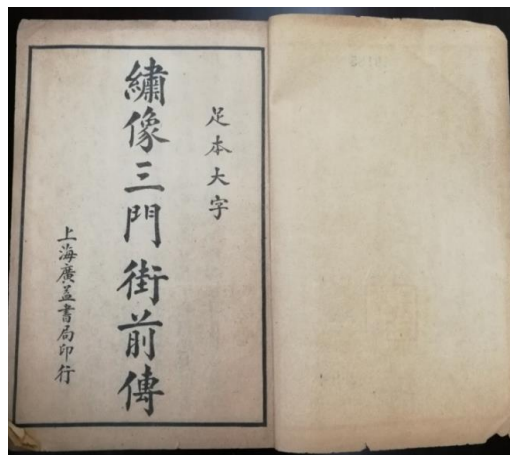 足本大字
繡像三門街前傳
上海廣益書局印行